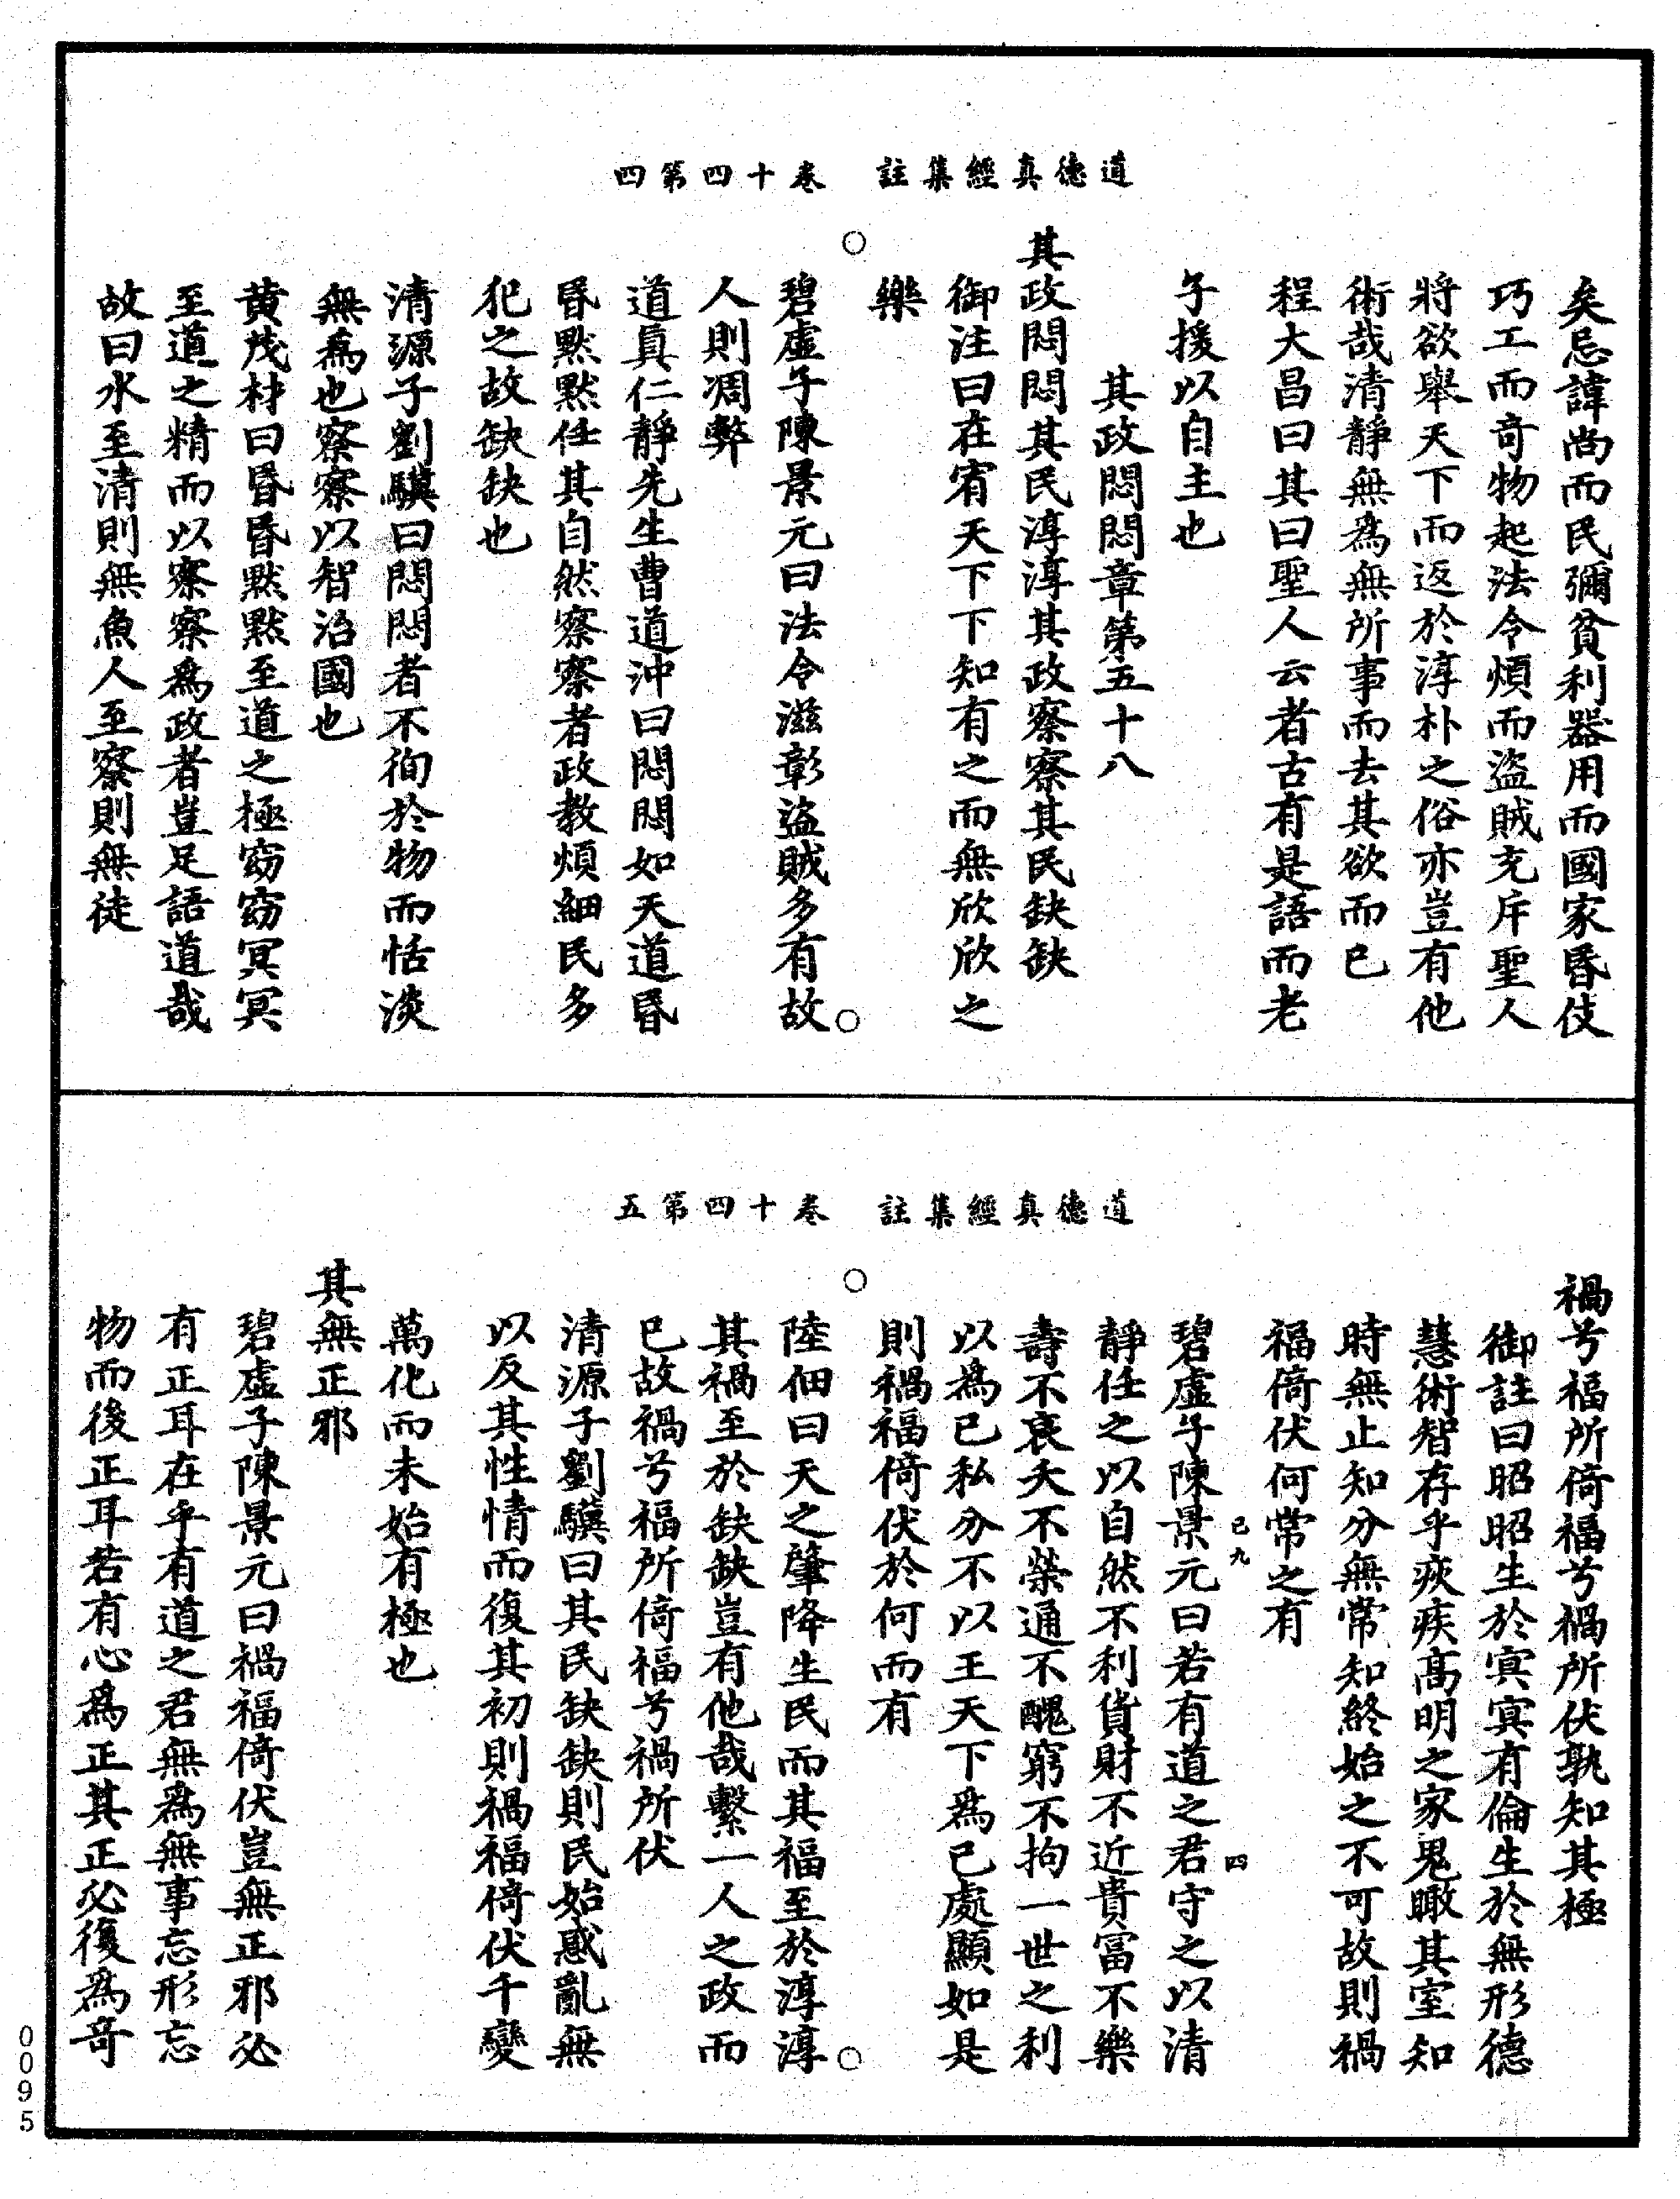 道德真經集註　卷十四第四
矣忌諱尚而民彌貧利器用而國家昬伎
巧工而竒物起法令煩而盜賊充斥聖人
將欲舉天下而返於淳朴之俗亦豈有他
術哉清靜無為無所事而去其欲而已
程大昌曰其曰聖人云者古有是語而老
子援以自主也
其政悶悶章第五十八
其政悶悶其民淳淳其政察察其民缺缺
御注曰在宥天下下知有之而無欣欣之
樂
碧虛子陳景元曰法令滋彰盜賊多有故
人則凋弊
道真仁靜先生曹道沖曰悶悶如天道昬
昬默默任其自然察察者政教煩細民多
犯之故缺缺也
清源子劉驥曰悶悶者不徇於物而恬淡
無為也察察以智治國也
黃茂材曰昬昬默默至道之極窈窈冥冥
至道之精而以察察為政者豈足語道哉
故曰水至清則無魚人至察則無徒
道德真經集註　卷十四第五
禍兮福所倚福兮禍所伏孰知其極
御註曰昭昭生於冥冥有倫生於無形德
慧術智存乎疢疾高明之家鬼瞰其室知
時無止知分無常知終始之不可故則禍
福倚伏何常之有
己九　四
碧虛子陳景元曰若有道之君守之以清
靜任之以自然不利貨財不近貴富不樂
壽不哀夭不榮通不醜窮不拘一世之利
以為己私分不以王天下為己處顯如是
則禍福倚伏於何而有
陸佃曰天之肇降生民而其福至於淳淳
其禍至於缺缺豈有他哉繫一人之政而
已故禍兮福所倚福兮禍所伏
清源子劉驥曰其民缺缺則民始惑亂無
以反其性情而復其初則禍福倚伏千變
萬化而未始有極也
其無正邪
碧虛子陳景元曰禍福倚伏豈無正邪必
有正耳在乎有道之君無為無事忘形忘
物而後正耳若有心為正其正必復為竒
0095